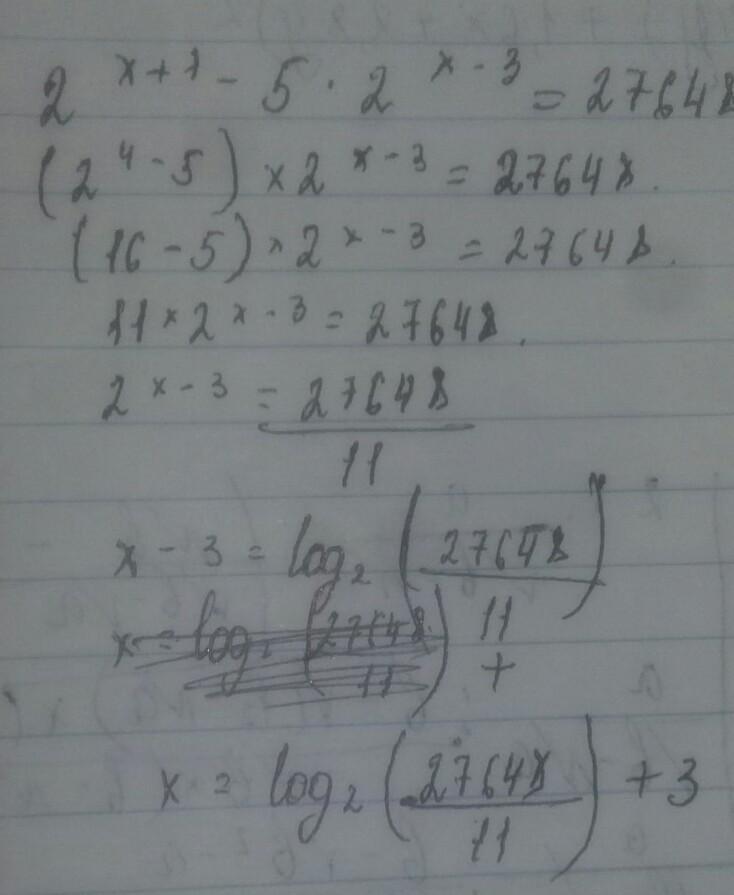 2^{x+1} - 5 · 2^{x-3} = 27648
(2^4 - 5) × 2^{x-3} = 27648.
(16 - 5) × 2^{x-3} = 27648.
11 × 2^{x-3} = 27648.
2^{x-3} = 27648/11
x - 3 = log₂ (27648/11)
x = log₂ (27648/11) +
x = log₂ (27648/11) + 3